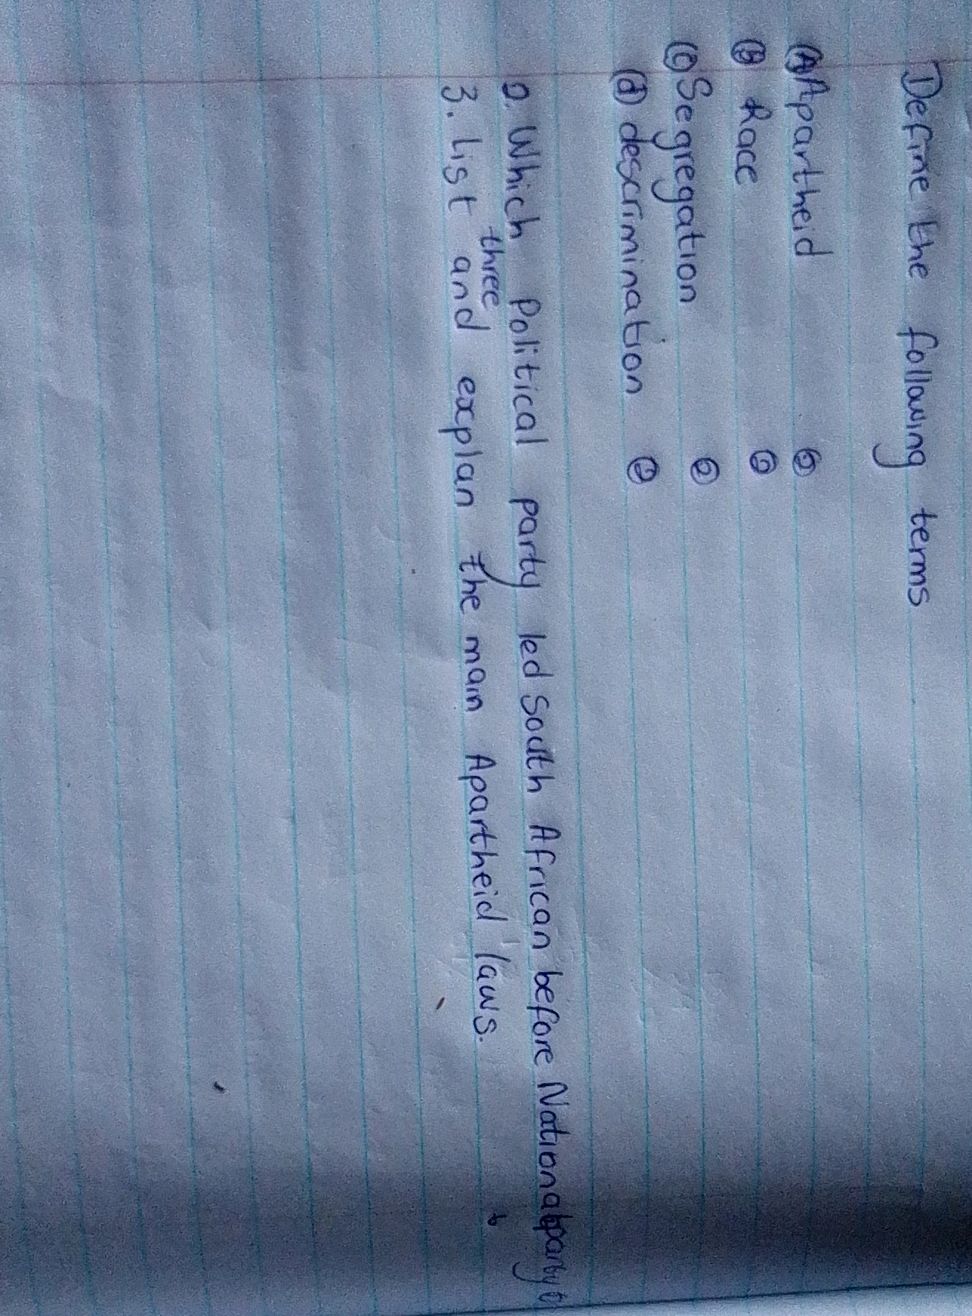 Define the following terms
(A) Apartheid ②
(B) Race
(C) Segregation ②
(d) descrimination
2. Which Political party led South African before National party
three
3. List and explan the main Apartheid laws.